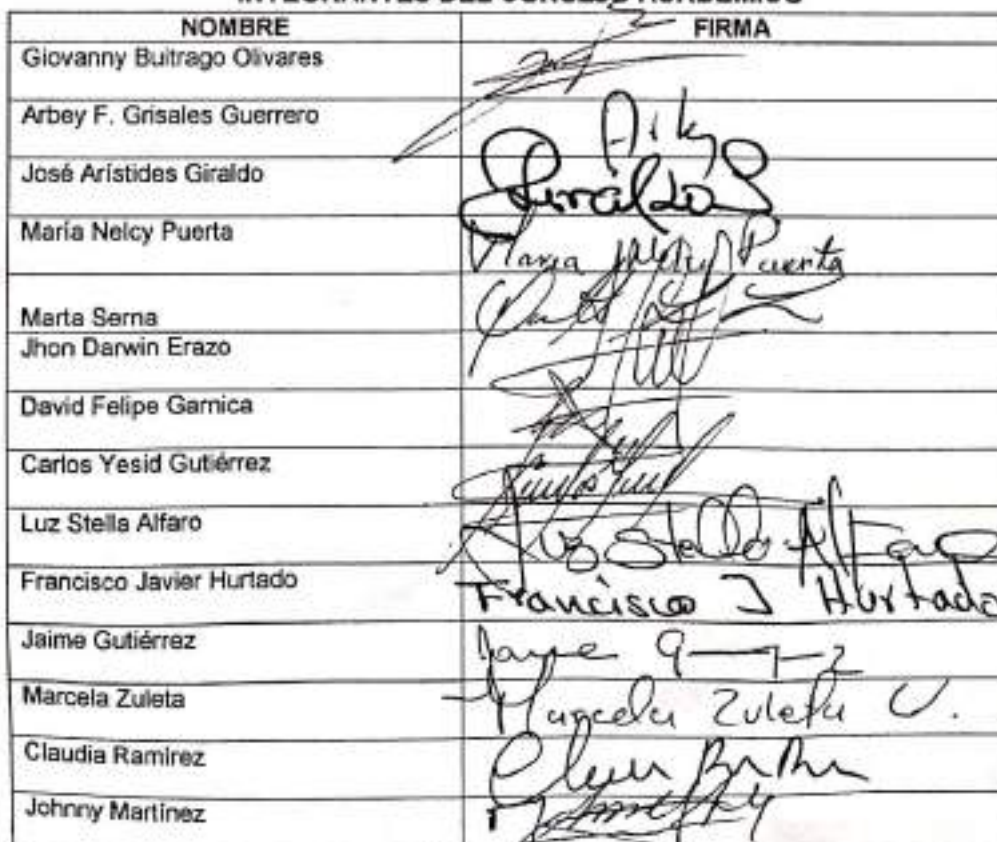 INTEGRANTES DEL CONSEJO ACADÉMICO
NOMBRE FIRMA
Giovanny Buitrago Olivares
Arbey F. Grisales Guerrero
José Arístides Giraldo Giraldo
María Nelcy Puerta Maria Nelcy Puerta
Marta Serna
Jhon Darwin Erazo
David Felipe Garnica
Carlos Yesid Gutiérrez
Luz Stella Alfaro Luz Stella Alfaro
Francisco Javier Hurtado Francisco J Hurtado
Jaime Gutiérrez
Marcela Zuleta Marcela Zuleta U.
Claudia Ramírez
Johnny Martínez